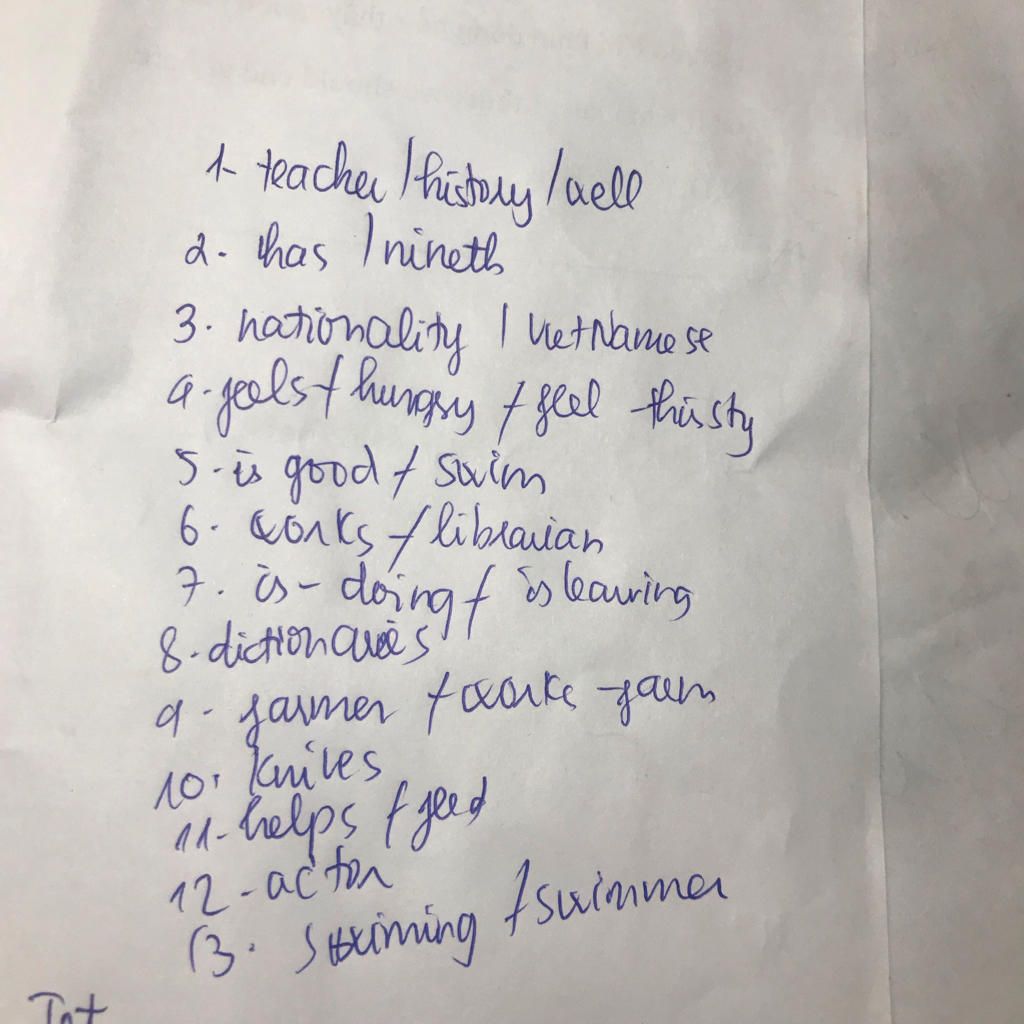 1- teacher / history / well
2. has / nineth
3. nationality / VietNamese
4. feels / hungry / feel thirsty
5. is good / swim
6. works / librarian
7. is - doing / is leaving
8. dictionaries
9. farmer / works farm
10. knives
11. helps / feed
12 - actor
13. swiming / swimmer